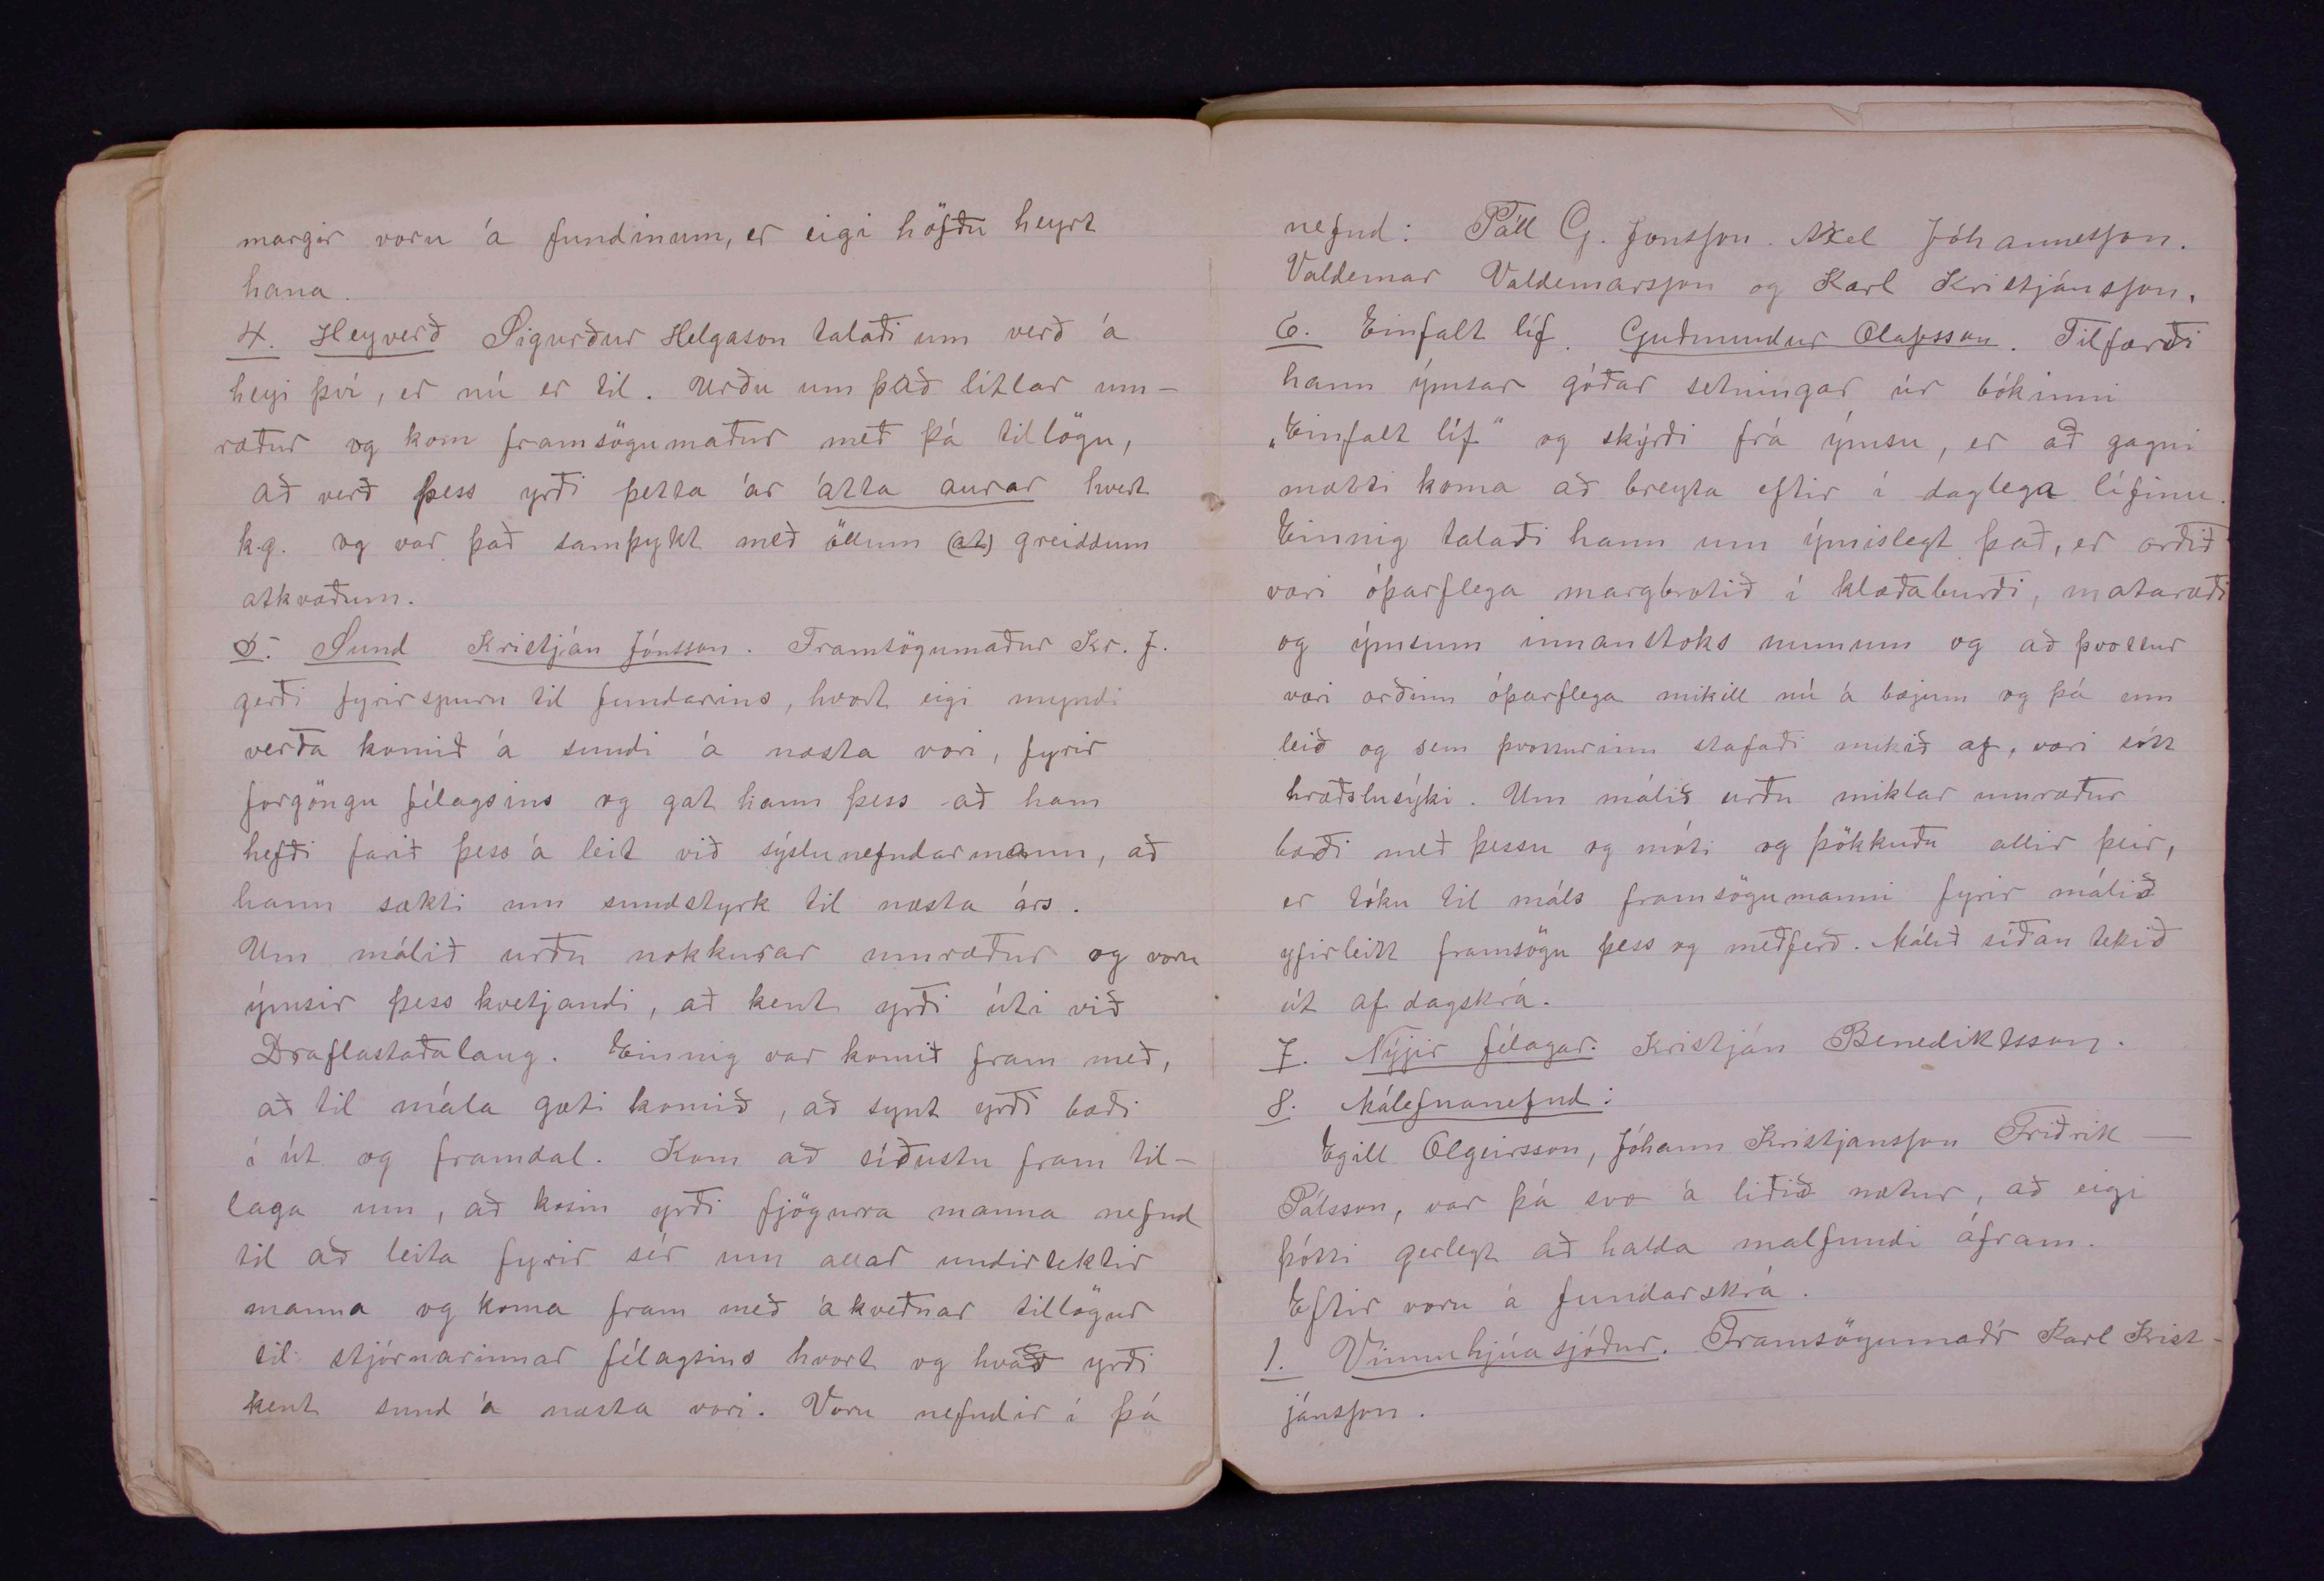 margir voru á fundinum, er eigi höfðu heyrt
hana.
4. Heyverð Sigurður Helgason talaði um verð á
heyi því, er nú er til. Urðu um það litlar um-
ræður og kom framsögumaður með þá tillögu,
að verð þess yrði þetta ár átta aurar hvert
k.g. og var það samþykt með öllum (at) greiddum
atkvæðum.
5. Sund Kristján Jónsson. Framsögumaður Kr. J.
gerði fyrirspurn til fundarins, hvort eigi myndi
verða komið á sundi á næsta vori, fyrir
forgöngu félagsins og gat hann þess að hann
hefði farið þess á leit við sýslunefndarmann, að
hann sækti um sundstyrk til næsta árs.
Um málið urðu nokkurar umræður og voru
ýmsir þess hvetjandi, að kent yrði úti við
Draflastaðalaug. Einnig var komið fram með,
að til mála gæti komið, að synt yrði bæði
í út og framdal. Kom að síðustu fram til-
laga um, að kosin yrði fjögurra manna nefnd
til að leita fyrir sér um allar undirtektir
manna og koma fram með ákveðnar tillögur
til stjórnarinnar félagsins hvort og hvað yrði
kent sund á næsta vori. Voru nefndir í þá
nefnd: Páll G. Jonsson. Axel Jóhannesson.
Valdemar Valdemarsson og Karl Kristjánsson.
6. Einfalt líf. Guðmundur Olafsson. Tilfærði
hann ýmsar góðar setningar úr bókinni
„Einfalt líf“ og skýrði frá ýmsu, er að gagni
mætti koma að breyta eftir í daglega lífinu.
Einnig talaði hann um ýmislegt það, er orðið
væri óþarflega margbrotið í klæðaburði, mataræði
og ýmsum innanstoks munum og að þvottur
væri orðinn óþarflega mikill nú á bæjum og þá um
leið og sem þvotturinn stafaði mikið af, væri sótt
hræðslusýki. Um málið urðu miklar umræður
bæði með þessu og móti og þökkuðu allir þeir,
er tóku til máls framsögumanni fyrir málið
yfirleitt framsögu þess og meðferð. Málið síðan tekið
út af dagskrá.
7. Nýjir félagar. Kristján Benediktsson.
8. Málefnanefnd:
Egill Olgeirsson, Jóhann Kristjansson Friðrik —
Pálsson, var þá svo á liðið nætur, að eigi
þótti gerlegt að halda malfundi áfram.
Eftir voru á fundarskrá.
1. Vinnuhjúasjóður. Framsögumaðr Karl Krist-
jánsson.